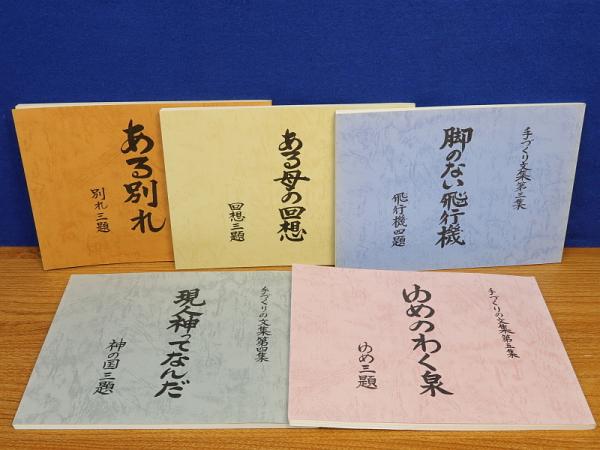 ある別れ
別れ三題
ある母の回想
回想三題
手づくり文集第三集
脚のない飛行機
飛行機四題
手づくりの文集第四集
現人神ってなんだ
神の国三題
手づくりの文集第五集
ゆめのわく泉
ゆめ三題